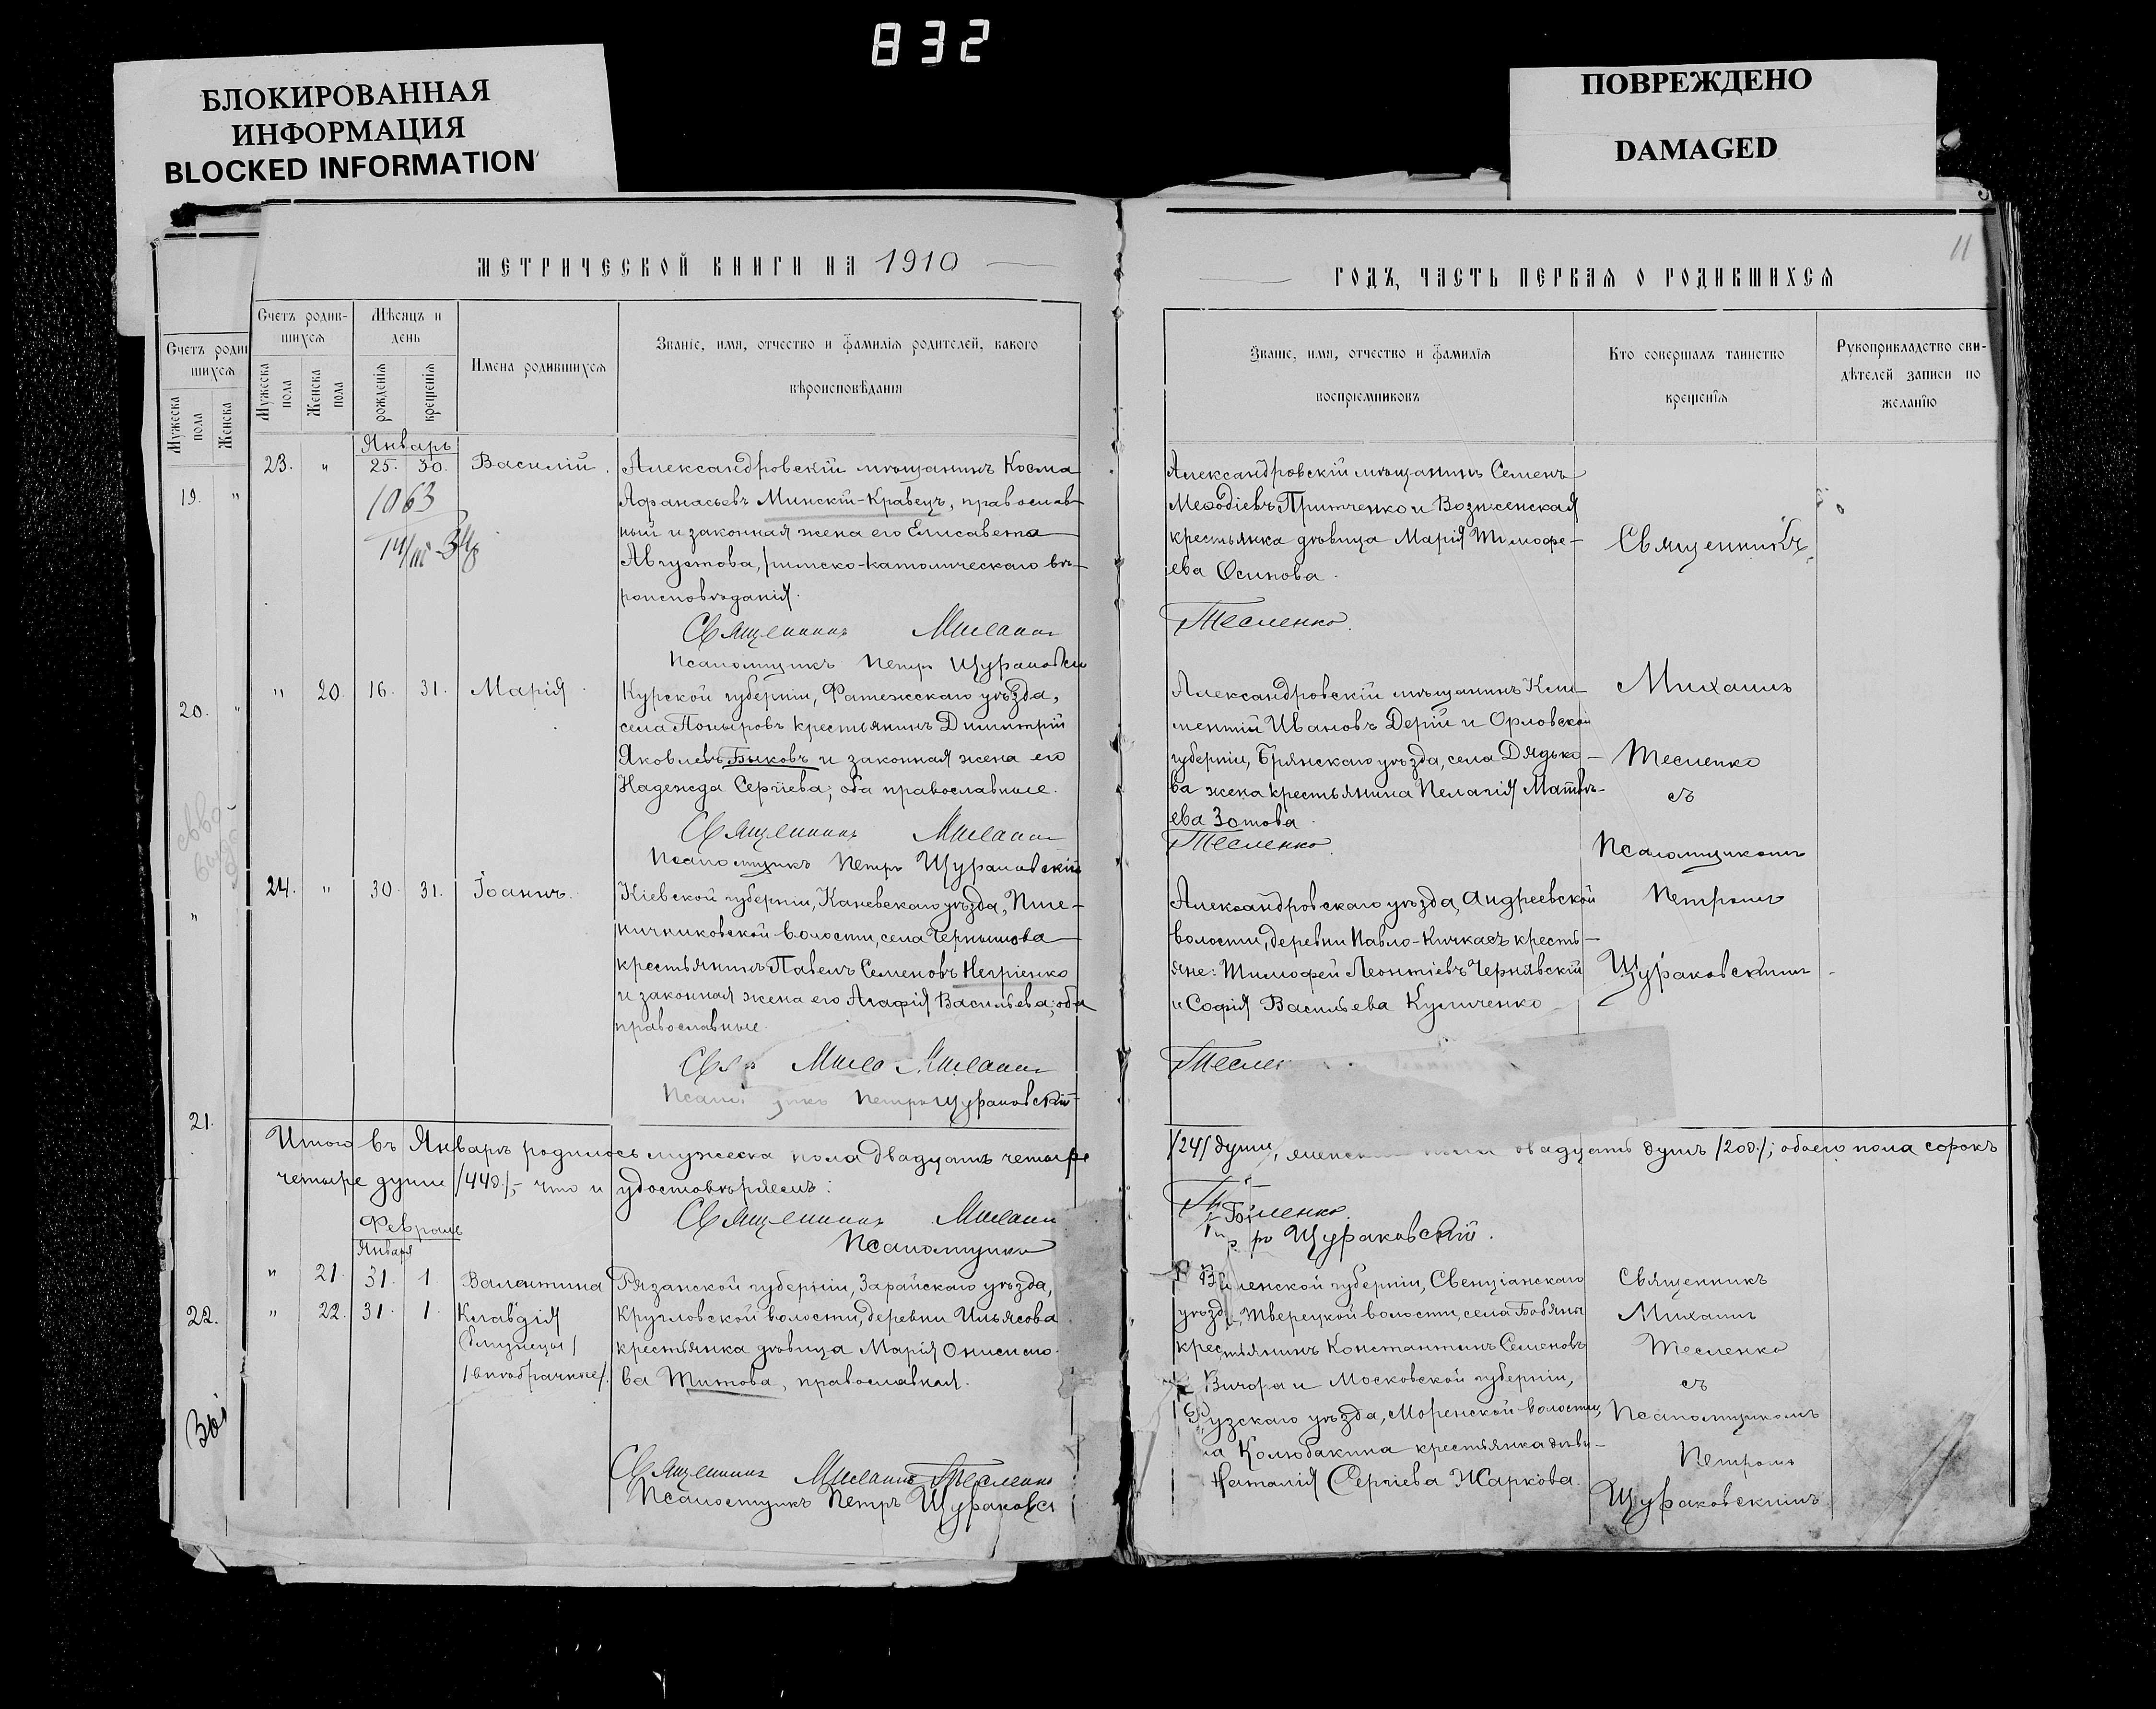 832
БЛОКИРОВАННАЯ
ИНФОРМАЦИЯ
BLOCKED INFORMATION
ПОВРЕЖДЕНО
DAMAGED
МЕТРИЧЕСКОЙ КНИГИ НА 1910
Счетъ родив-
шихся
Мѣсяцъ и
день
Мужеска
пола
Женска
пола
рожденія
крещенія
Имена родившихся
Званіе, имя, отчество и фамилія родителей, какого
вѣроисповѣданія
Счетъ роди
шихся
Мужеска
пола
Женска
19. "
20. "
"
21.
22.
Январь
23. " 25. 30. Василій.
1063
Александровскій мѣщанинъ Косма
Афанасьевъ Минскій-Кравецъ, православ-
ный и законная жена его Елисавета
Августова, римско-католическаго вѣ-
роисповѣданія.
Священникъ Михаилъ
Псаломщикъ Петръ Щураковскі
" 20. 16. 31. Марія
Курской губерніи, Фатежскаго уѣзда,
села Поныровъ крестьянинъ Димитрій
Яковлевъ Быковъ и законная жена его
Надежда Сергіева, оба православные.
Священникъ Михаилъ
Псаломщикъ Петръ Щураковскій
24. " 30. 31. Іоаннъ.
Кіевской губерніи, Каневскаго уѣзда, Пше-
ничниковской волости, села Чернышова
крестьянинъ Павелъ Семеновъ Негріенко
и законная жена его Агафія Васильева, оба
православные.
Михаилъ
Петръ Щураковскій
Итого въ Январѣ родилось мужеска пола двадцать четыре
четыре души /44д./, что и удостовѣряемъ:
Священникъ Михаилъ
Псаломщикъ
Февраль
Января
" 21. 31. 1. Валентина
" 22. 31. 1. Клавдія
(близнецы)
/внѣбрачные/.
Рязанской губерніи, Зарайскаго уѣзда,
Кругловской волости, деревни Ильясова
крестьянка дѣвица Марія Онисимо-
ва Титова, православная.
Священникъ Михаилъ Тесленко
Псаломщикъ Петръ Щураковск
11
ГОДЪ, ЧАСТЬ ПЕРВАЯ О РОДИВШИХСЯ
Званіе, имя, отчество и фамилія
воспріемниковъ
Кто совершалъ таинство
крещенія
Рукоприкладство сви-
дѣтелей записи по
желанію
Александровскій мѣщанинъ Семенъ
Меѳодіевъ Притченко и Вознесенская
крестьянка дѣвица Марія Тимофе-
ева Осипова.
Тесленко.
Священникъ
Александровскій мѣщанинъ Кли-
ментій Ивановъ Дерій и Орловской
губерніи, Брянскаго уѣзда, села Дядько-
ва жена крестьянина Пелагія Матвѣ-
ева Зотова.
Тесленко.
Михаилъ
Тесленко
съ
Псаломщикомъ
Петромъ
Щураковскимъ.
Александровскаго уѣзда, Андреевской
волости, деревни Павло-Кичкасъ кресть-
яне: Тимофей Леонтіевъ Чернявскій
и Софія Васильева Куличенко
Теслен
/24/ души, женска пола двадцать душъ /20д./; обоего пола сорокъ
Щураковскій.
Виленской губерніи, Свенціанскаго
уѣзда, Тверецкой волости, села Бобяны
крестьянинъ Константинъ Семеновъ
Вичора и Московской губерніи,
Рузскаго уѣзда, Моренской волости,
Колюбакина крестьянка дѣви-
Наталія Сергіева Жаркова.
Священникъ
Михаилъ
Тесленко
съ
Псаломщикомъ
Петромъ
Щураковскимъ